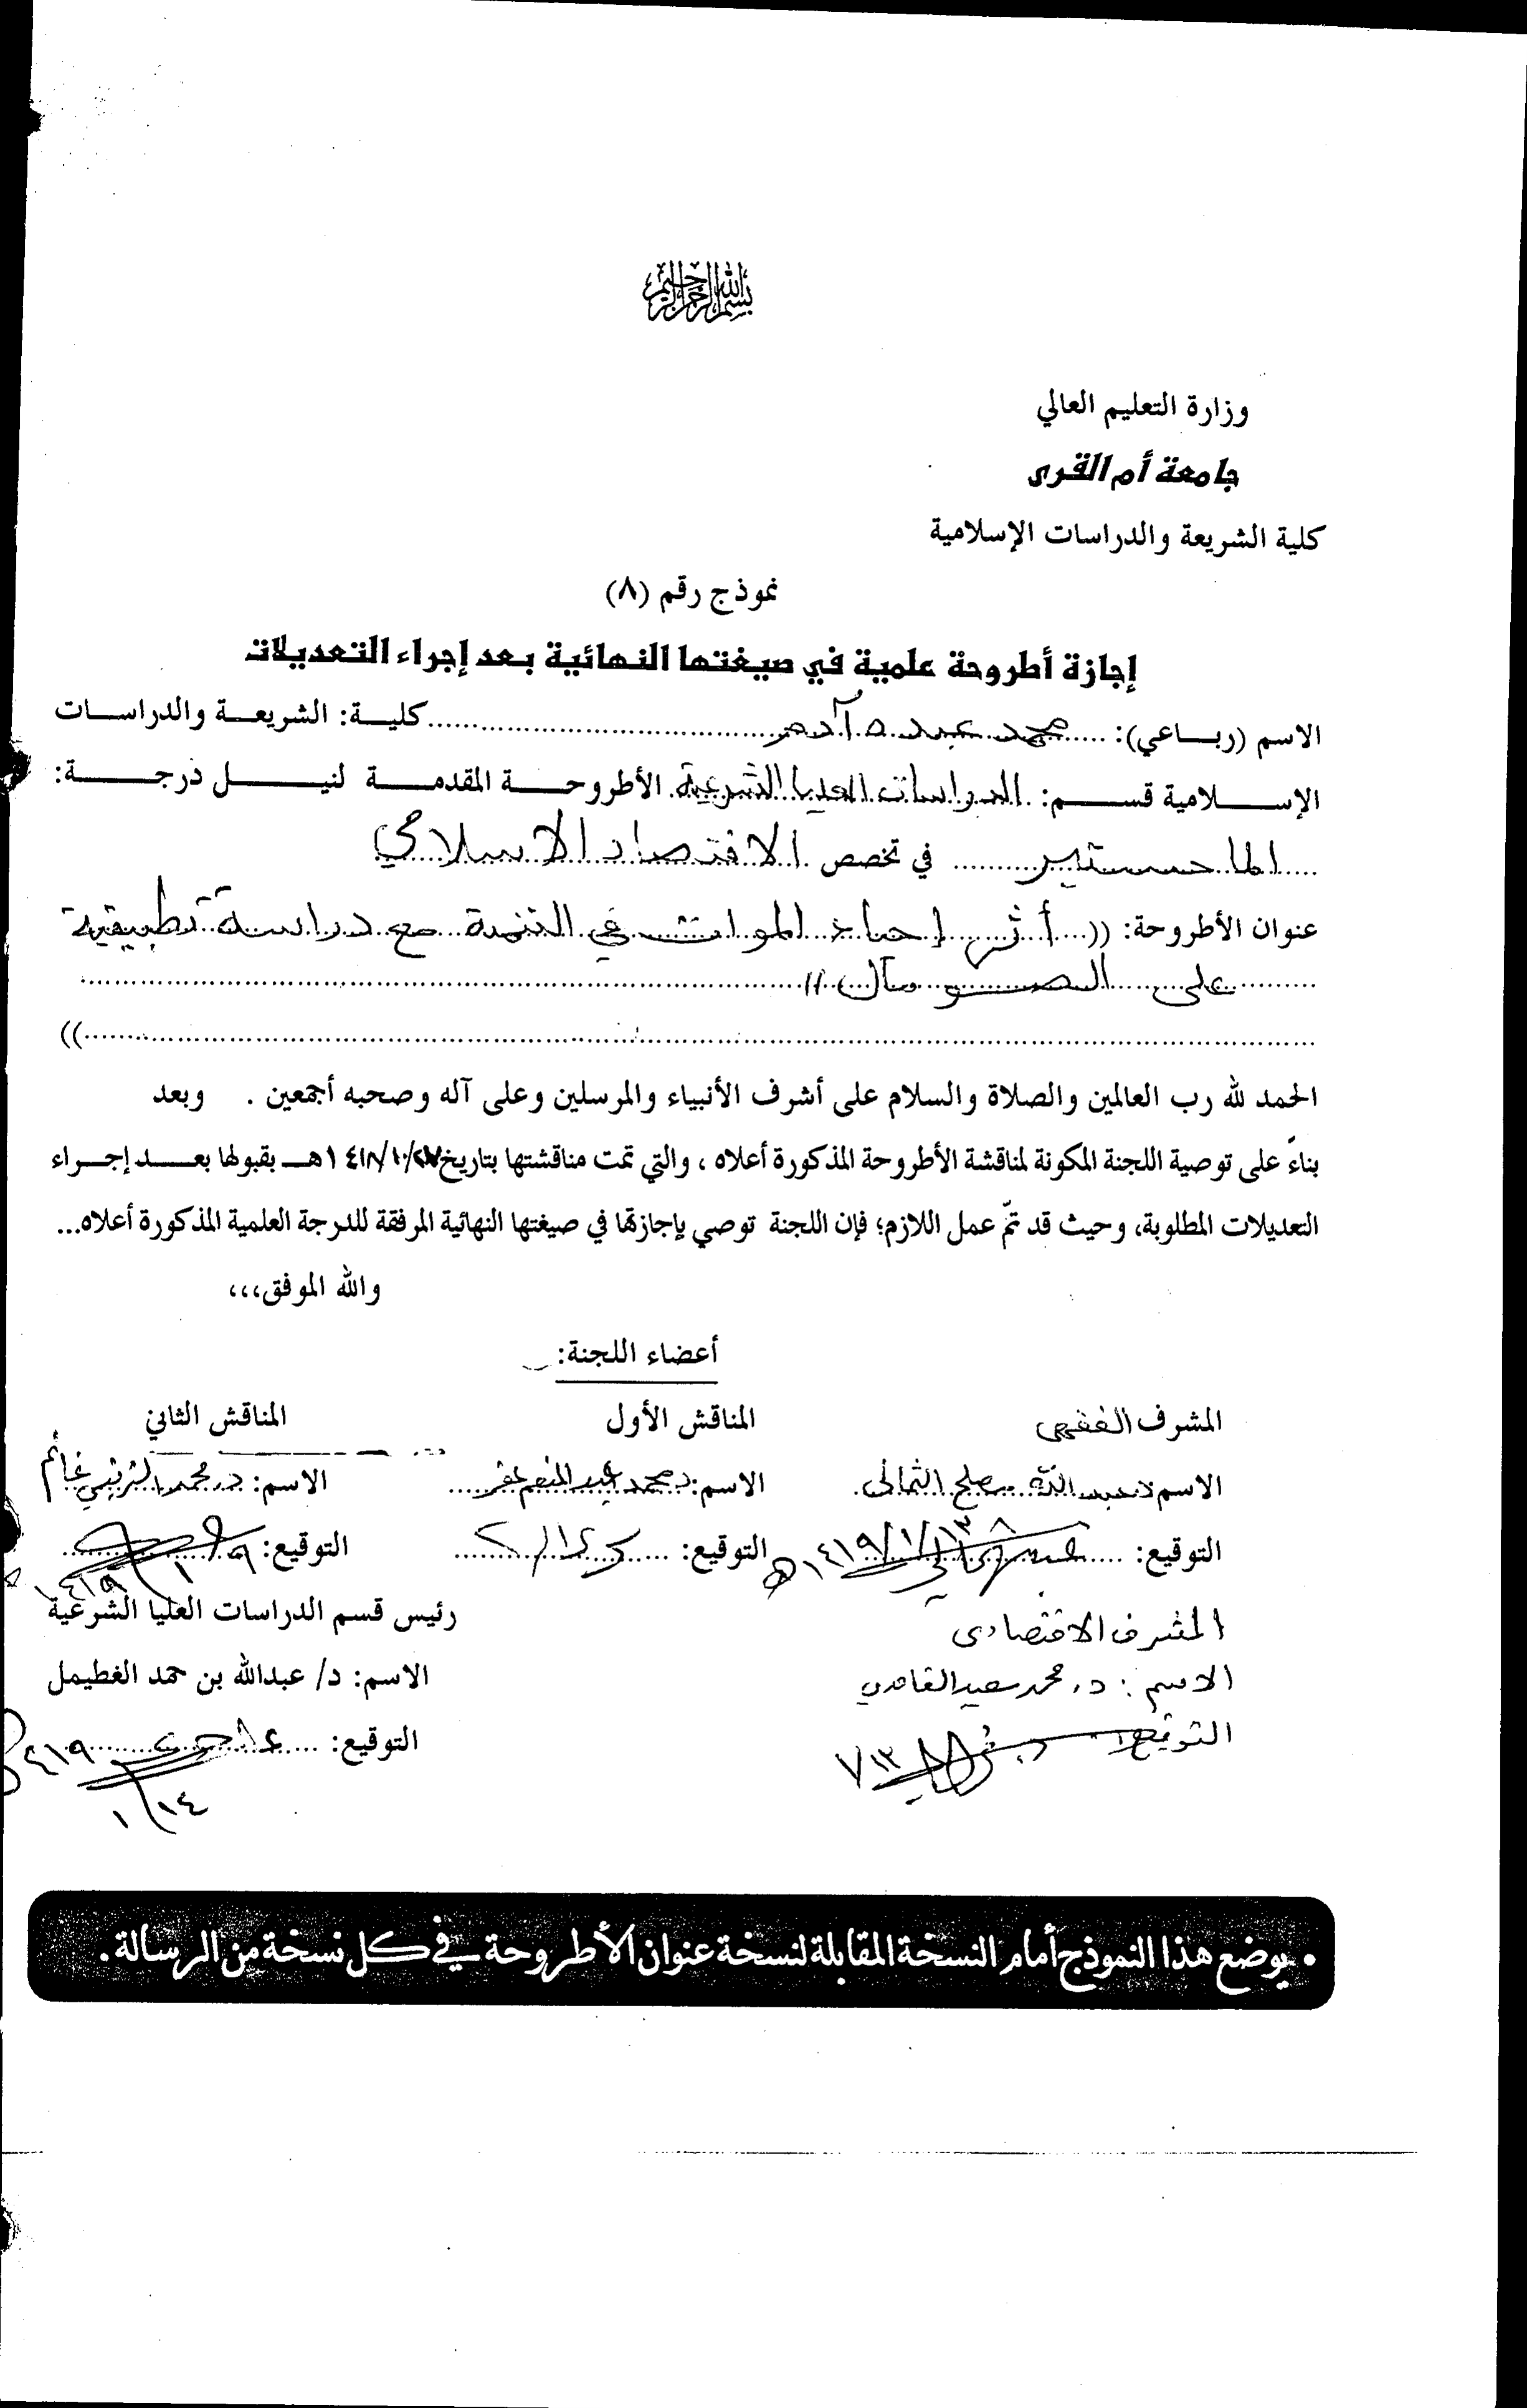 بسم الله الرحمن الرحيم
وزارة التعليم العالي
جامعة أم القرى
كلية الشريعة والدراسات الإسلامية
نموذج رقم (٨)
إجازة أطروحة علمية في صيغتها النهائية بعد إجراء التعديلات
الاسم (رباعي): محمد عبده آدم كلية: الشريعة والدراسات
الإسلامية قسم: الدراسات العليا الشرعية الأطروحة المقدمة لنيل درجة:
الماجستير في تخصص الاقتصاد الإسلامي
عنوان الأطروحة: ((أثر إحياء الموات في التنمية مع دراسة تطبيقية
على الصومال))
))
الحمد لله رب العالمين والصلاة والسلام على أشرف الأنبياء والمرسلين وعلى آله وصحبه أجمعين . وبعد
بناءً على توصية اللجنة المكونة لمناقشة الأطروحة المذكورة أعلاه ، والتي تمت مناقشتها بتاريخ ٢٧/١٠/١٤١٨هـ بقبولها بعد إجراء
التعديلات المطلوبة، وحيث قد تمّ عمل اللازم؛ فإن اللجنة توصي بإجازتها في صيغتها النهائية المرفقة للدرجة العلمية المذكورة أعلاه...
والله الموفق،،،
أعضاء اللجنة:
المشرف الفقهي المناقش الأول المناقش الثاني
الاسم د. عبد الله مصلح الثمالي الاسم: د محمد عبد المنعم عفر الاسم: د. محمد الشربيني غانم
التوقيع: ١٣/١/١٤١٩هـ التوقيع: التوقيع:
المشرف الاقتصادي
رئيس قسم الدراسات العليا الشرعية
الاسم : د. محمد سعيد الغامدي
الاسم: د/ عبدالله بن حمد الغطيمل
التوقيع
التوقيع:
١٤/١
• يوضع هذا النموذج أمام النسخة المقابلة لنسخة عنوان الأطروحة في كل نسخة من الرسالة .